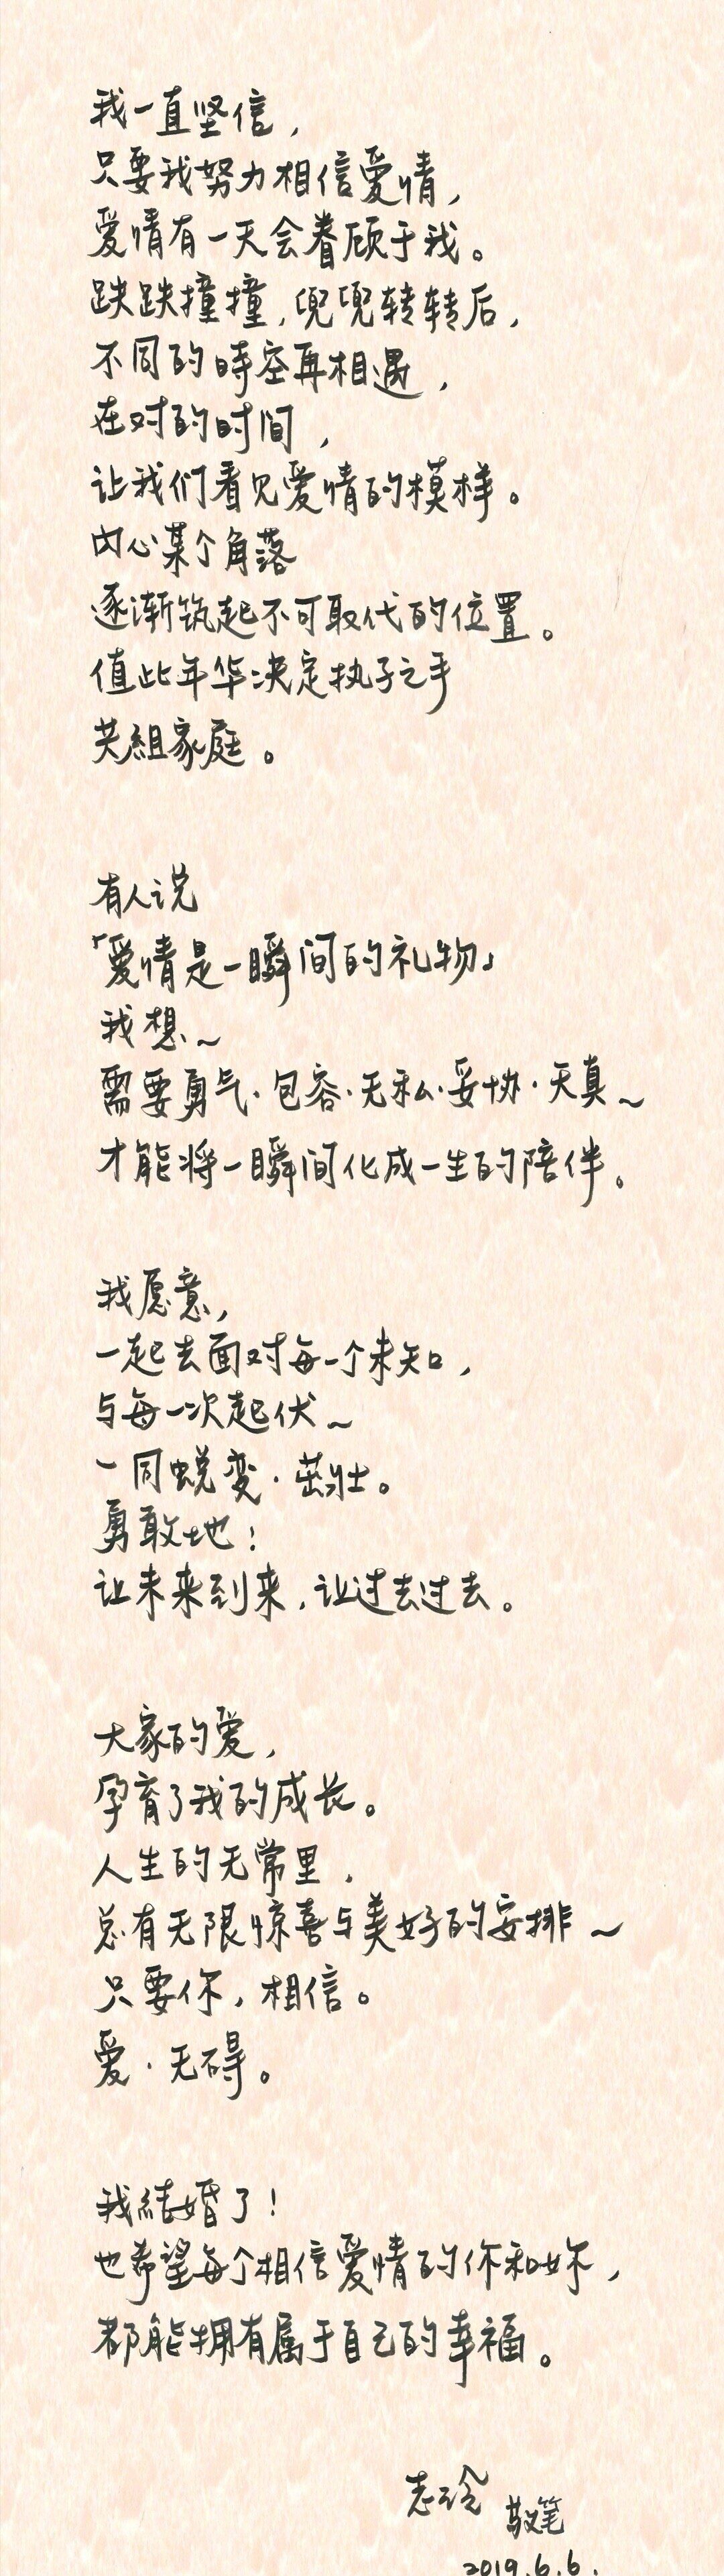 我一直坚信，
只要我努力相信爱情，
爱情有一天会眷顾于我。
跌跌撞撞，兜兜转转后，
不同的時空再相遇，
在对的时间，
让我们看见爱情的模样。
内心某个角落
逐渐筑起不可取代的位置。
值此年华决定执子之手
共組家庭。
有人说
「爱情是一瞬间的礼物」
我想~
需要勇气·包容·无私·妥协·天真~
才能将一瞬间化成一生的陪伴。
我愿意，
一起去面对每一个未知，
与每一次起伏~
一同蜕变·茁壮。
勇敢地！
让未来到来，让过去过去。
大家的爱，
孕育了我的成长。
人生的无常里，
总有无限惊喜与美好的安排~
只要你，相信。
爱·无碍。
我結婚了！
也希望每个相信爱情的你和妳，
都能拥有属于自己的幸福。
志玲
敬笔
2019.6.6.